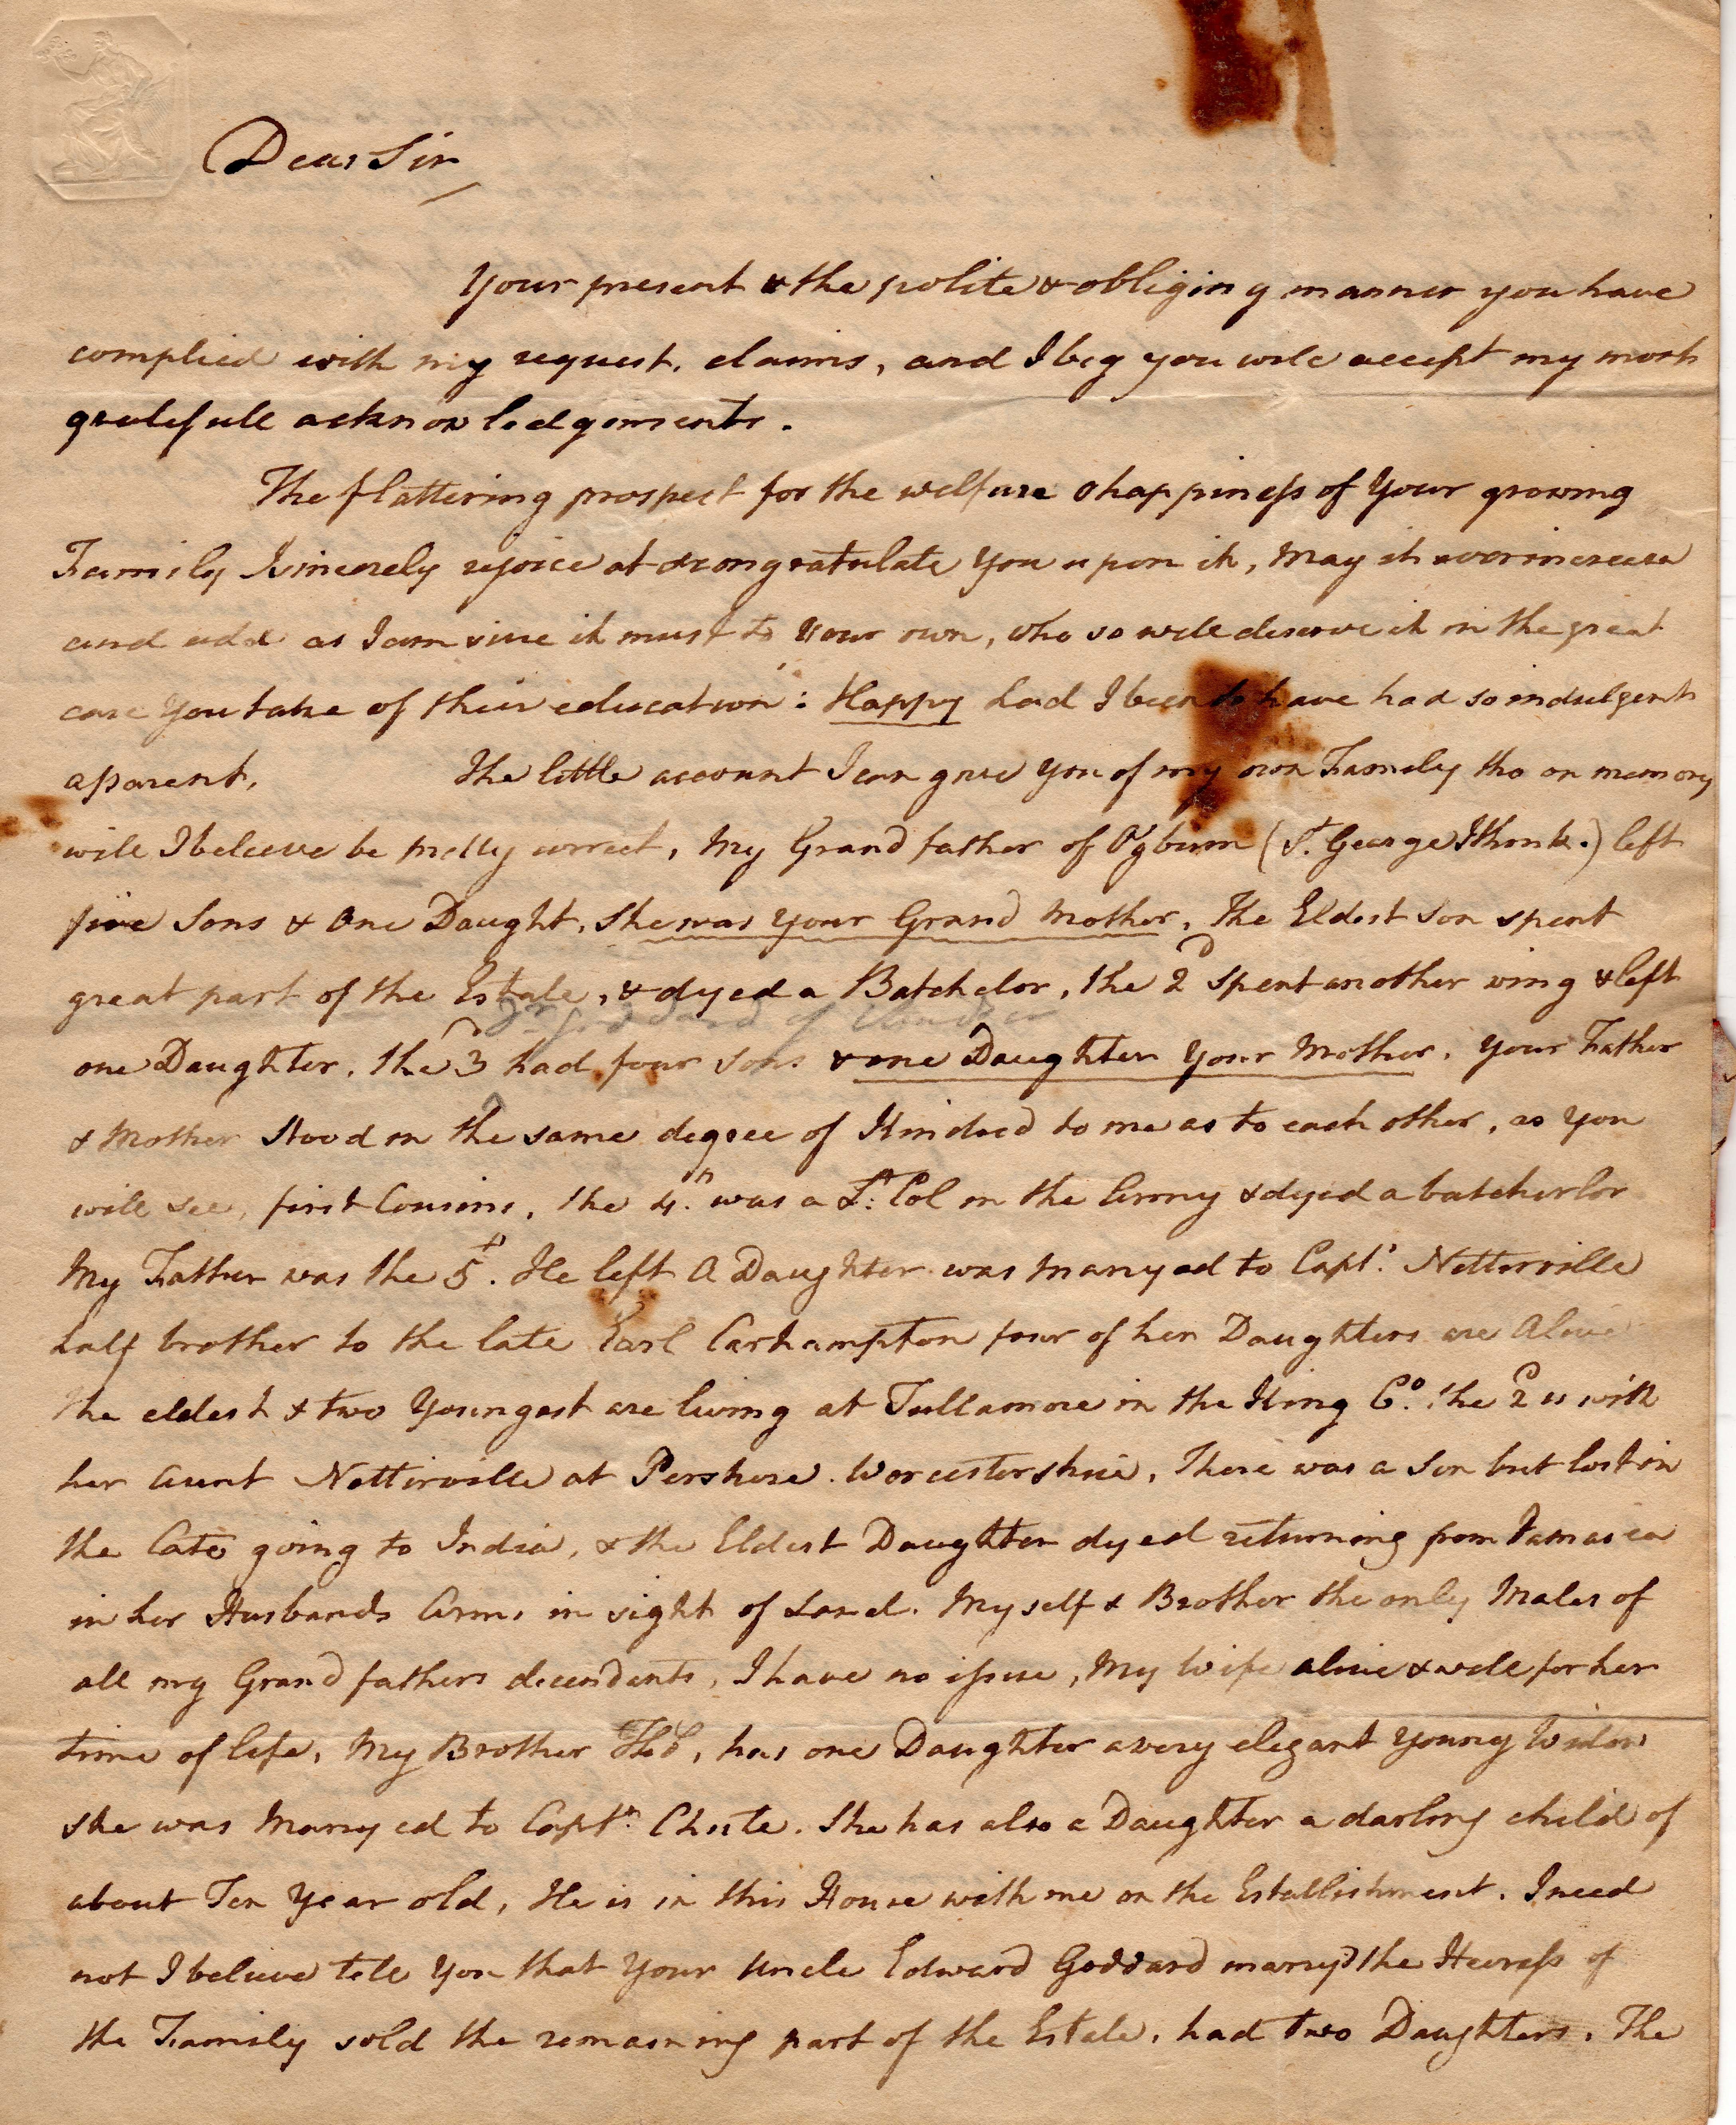 Dear Sir
Your present & the polite & obliging manner you have
complied with my request, claims, and I beg you will accept my most
gratefull acknowledgements.
The flattering prospect for the welfare & happiness of Your growing
Family I sincerely rejoice at & congratulate You upon it, May it ever increase
and add as I am sure it must to Your own, who so well deserve it in the great
care You take of their education: Happy had I been to have had so indulgent
a parent. The little account I can give You of my own Family tho on memory
will I beleeve be pretty correct, My Grand father of Ogburn (St. George I think.) left
five Sons & One Daught. She was Your Grand Mother. The Eldest Son spent
great part of the Estate, & dyed a Batchelor, the 2d Spent another wing & left
Dr. Goddard of
one Daughter. the 3d had four Sons & one Daughter Your Mother. Your Father
& Mother Stood in the same degree of Kindred to me as to each other, as You
will see, first Cousins. the 4th was a Lt. Col in the Army & dyed a batcherlor
My Father was the 5th. He left A Daughter was Marryed to Capt. Netterville
half brother to the late Earl Carhampton four of her Daughters are Alive
the eldest & two Youngest are living at Tullamore in the King Co. the 2d is with
her Aunt Netterville at Pershore. Worcestershire. There was a Son but lost in
the Cato going to India, & the Eldest Daughter dyed returning from Jamaica
in her Husbands Arms in sight of Land. Myself & Brother the only Males of
all my Grand fathers decendents, I have no issue, My Wife alive & well for her
time of life, My Brother Thos, has one Daughter a very elegant Young Widow
She was Marryed to Captn. Chute. She has also a Daughter a darling child of
about Ten Year old, He is in this House with me on the Establishment. I need
not I believe tell You that Your Uncle Edward Goddard marry'd the Heiress of
the Family sold the remaining part of the Estate, had two Daughters. The